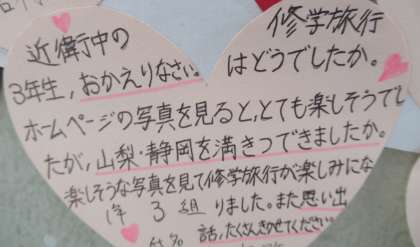 近衛中の
3年生，おかえりなさい。
修学旅行
はどうでしたか。
ホームページの写真を見ると，とても楽しそうでし
たが，山梨・静岡を満きつできましたか。
楽しそうな写真を見て修学旅行が楽しみにな
りました。また思い出
話，たくさんきかせてください。
年 3 組